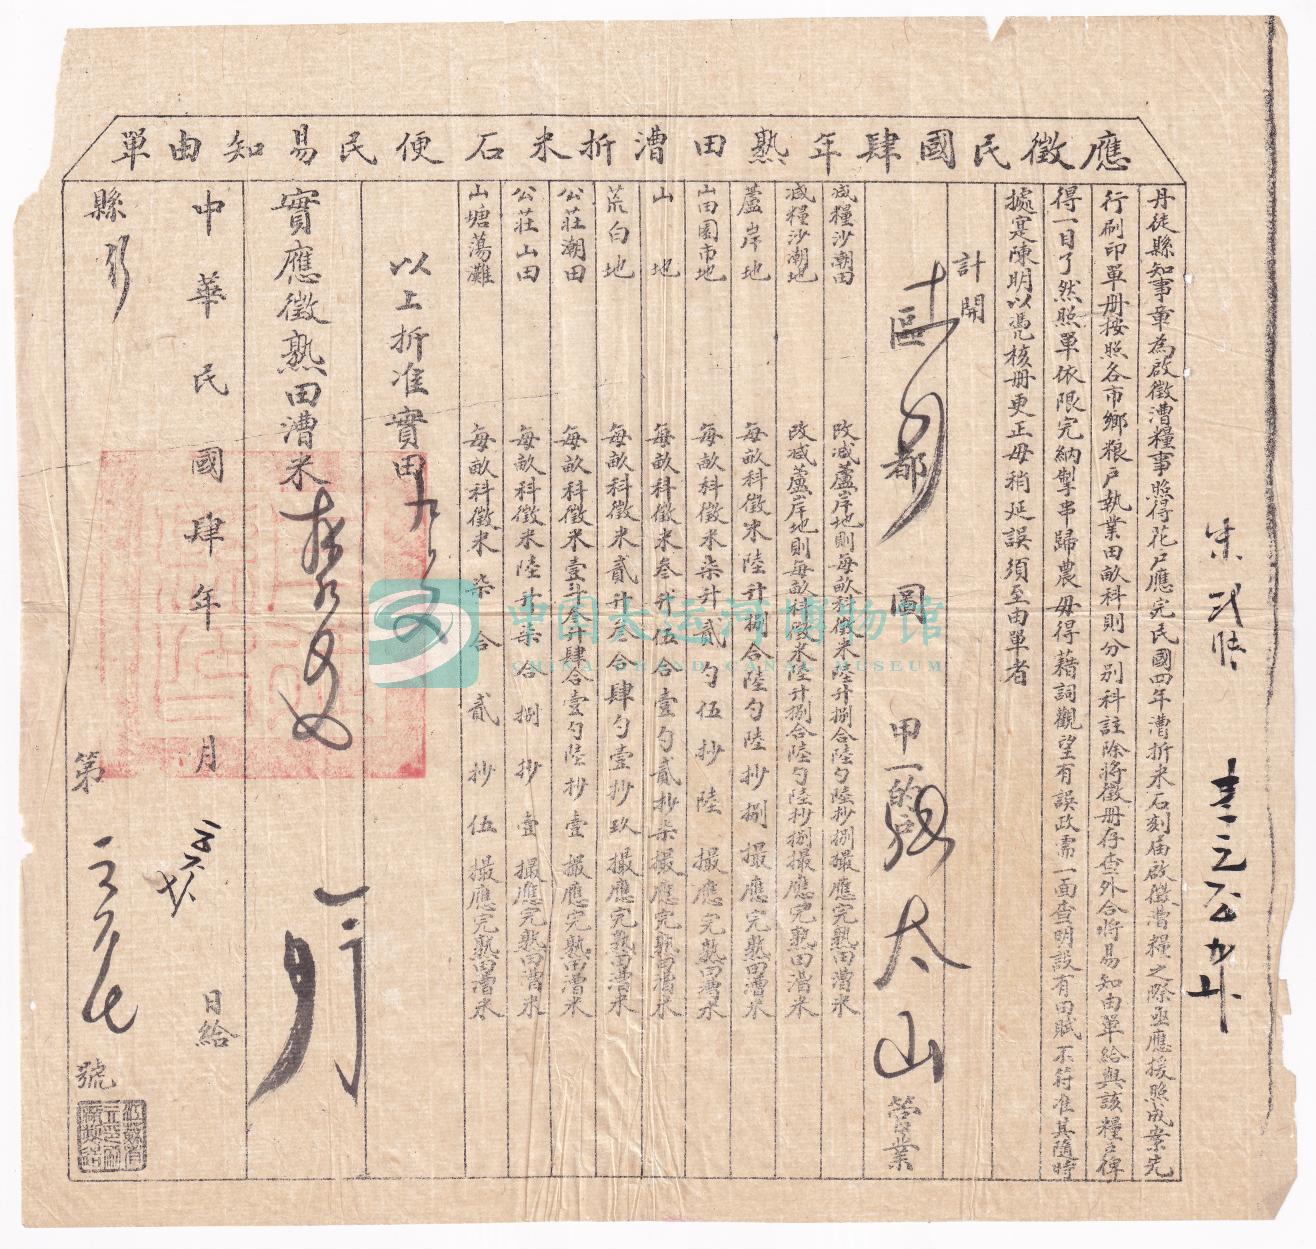 應徵民國肆年熟田漕折米石便民易知由單
丹徒縣知事章為啟徵漕糧事照得花戶應完民國四年漕折米石刻届啟徵漕糧之際亟應援照成案先
行刷印單册按照各市鄉粮户執業田畝科則分别科註除將徵册存查外合將易知由單給與該糧户俾
得一目了然照單依限完納掣串歸農毋得藉詞觀望有誤政需一面查明設有田賦不符准其隨時
據寔陳明以凴核册更正毋稍延誤須至由單者
計開
區 都 圖 甲 一的户 太山 營業
减糧沙潮田 改减蘆岸地則每畝科徵米陸升捌合陸勺陸抄捌撮應完熟田漕米
减糧沙潮地 改减蘆岸地則每畝科徵米陸升捌合陸勺陸抄捌撮應完熟田漕米
蘆岸地 每畝科徵米陸升捌合陸勺陸抄捌撮應完熟田漕米
山田園市地 每畝科徵米柒升貳勺伍抄陸撮應完熟田漕米
山地 每畝科徵米叁升伍合壹勺貳抄柒撮應完熟田漕米
荒白地 每畝科徵米貳升叁合肆勺壹抄玖撮應完熟田漕米
公莊潮田 每畝科徵米壹斗叁升肆合壹勺陸抄壹撮應完熟田漕米
公莊山田 每畝科徵米陸升柒合捌抄壹撮應完熟田漕米
山塘蕩灘 每畝科徵米柒合貳抄伍撮應完熟田漕米
以上折准實田
實應徵熟田漕米
中華民國肆年 月 日給
縣 第 號
中国大运河博物馆
CHINA GRAND CANAL MUSEUM